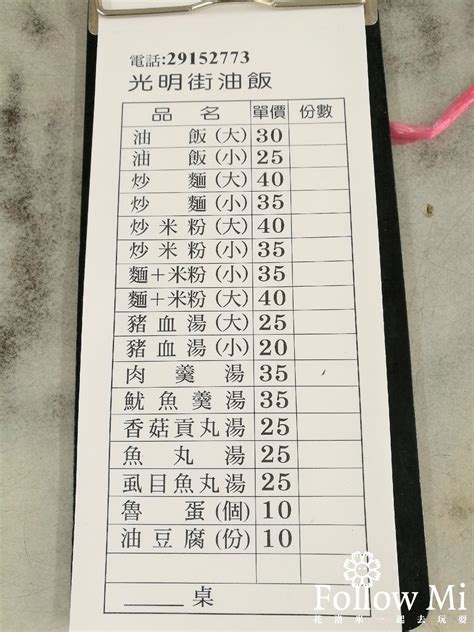 電話:29152773
光明街油飯
品名 單價 份數
油飯(大) 30
油飯(小) 25
炒麵(大) 40
炒麵(小) 35
炒米粉(大) 40
炒米粉(小) 35
麵+米粉(小) 35
麵+米粉(大) 40
豬血湯(大) 25
豬血湯(小) 20
肉羹湯 35
魷魚羹湯 35
香菇貢丸湯 25
魚丸湯 25
虱目魚丸湯 25
魯蛋(個) 10
油豆腐(份) 10
____桌
Follow Mi
花洛米一起去玩耍